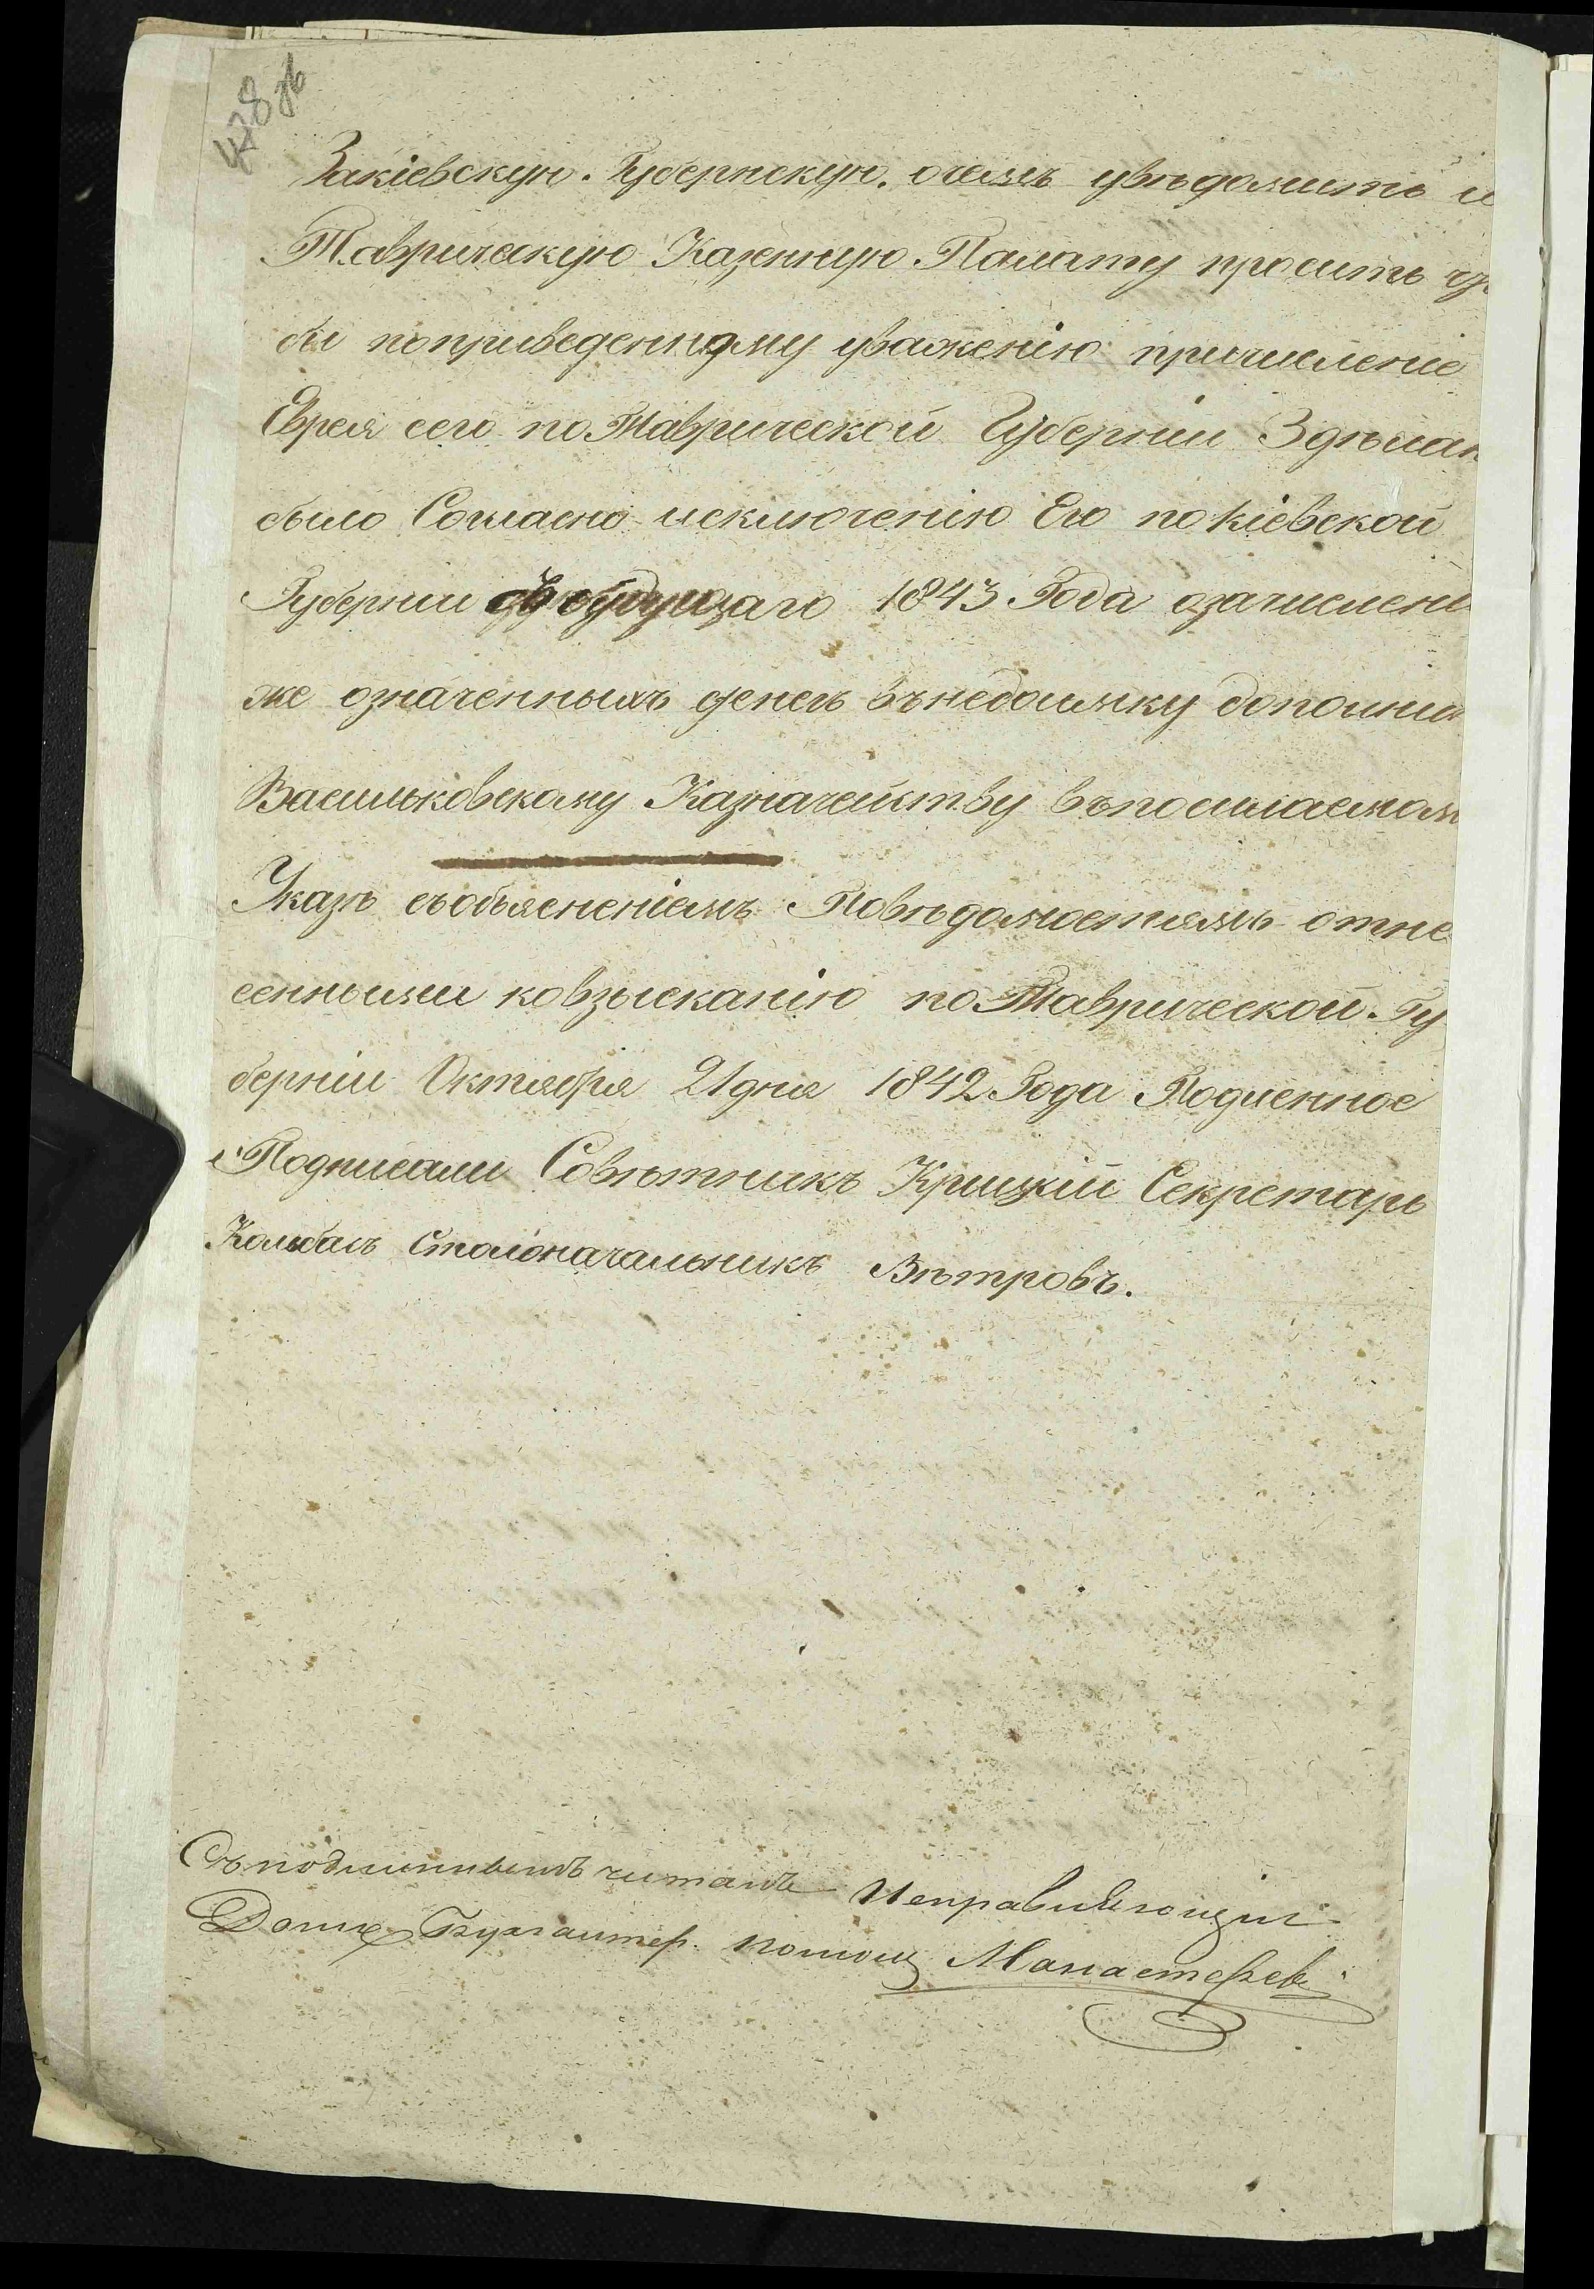 438 об
Закіевскую. Губернскую. очемъ увѣдомить и
Таврическую Казенную Палату просить чт
бы поприведенному уваженію причисленіе
Еврея сего по Таврической Губерніи Здѣлан
было Согласно исключенію Его по кіевской
Губерніи съ будущаго 1843 Года озачислени
же означенныхъ денегъ внедоимку
Васильковскому Казначейству въпосылаемом
Указѣ съобъясненіемъ Повѣдомостямъ отне
сенными ковзысканію по Таврической Гу
берніи Октября 21 дня 1842 Года Подленное
Подписали Совѣтникъ Крицкій Секретарь
Столоначальникъ Вѣтровъ.
Съ подлиннымъ читалъ Исправляющій
Долж Бухгалтер. помощ